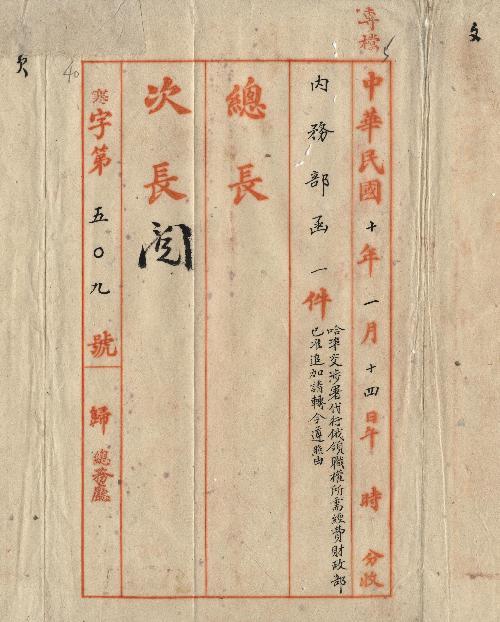 文
專檔
中華民國十年一月十四日午 時 分收
內務部函一件
哈埠交涉署代行俄領職權所需經費財政部
已准追加請轉令遵照由
總長
次長
閱
寒字第五〇九號
歸總務廳
40
欠